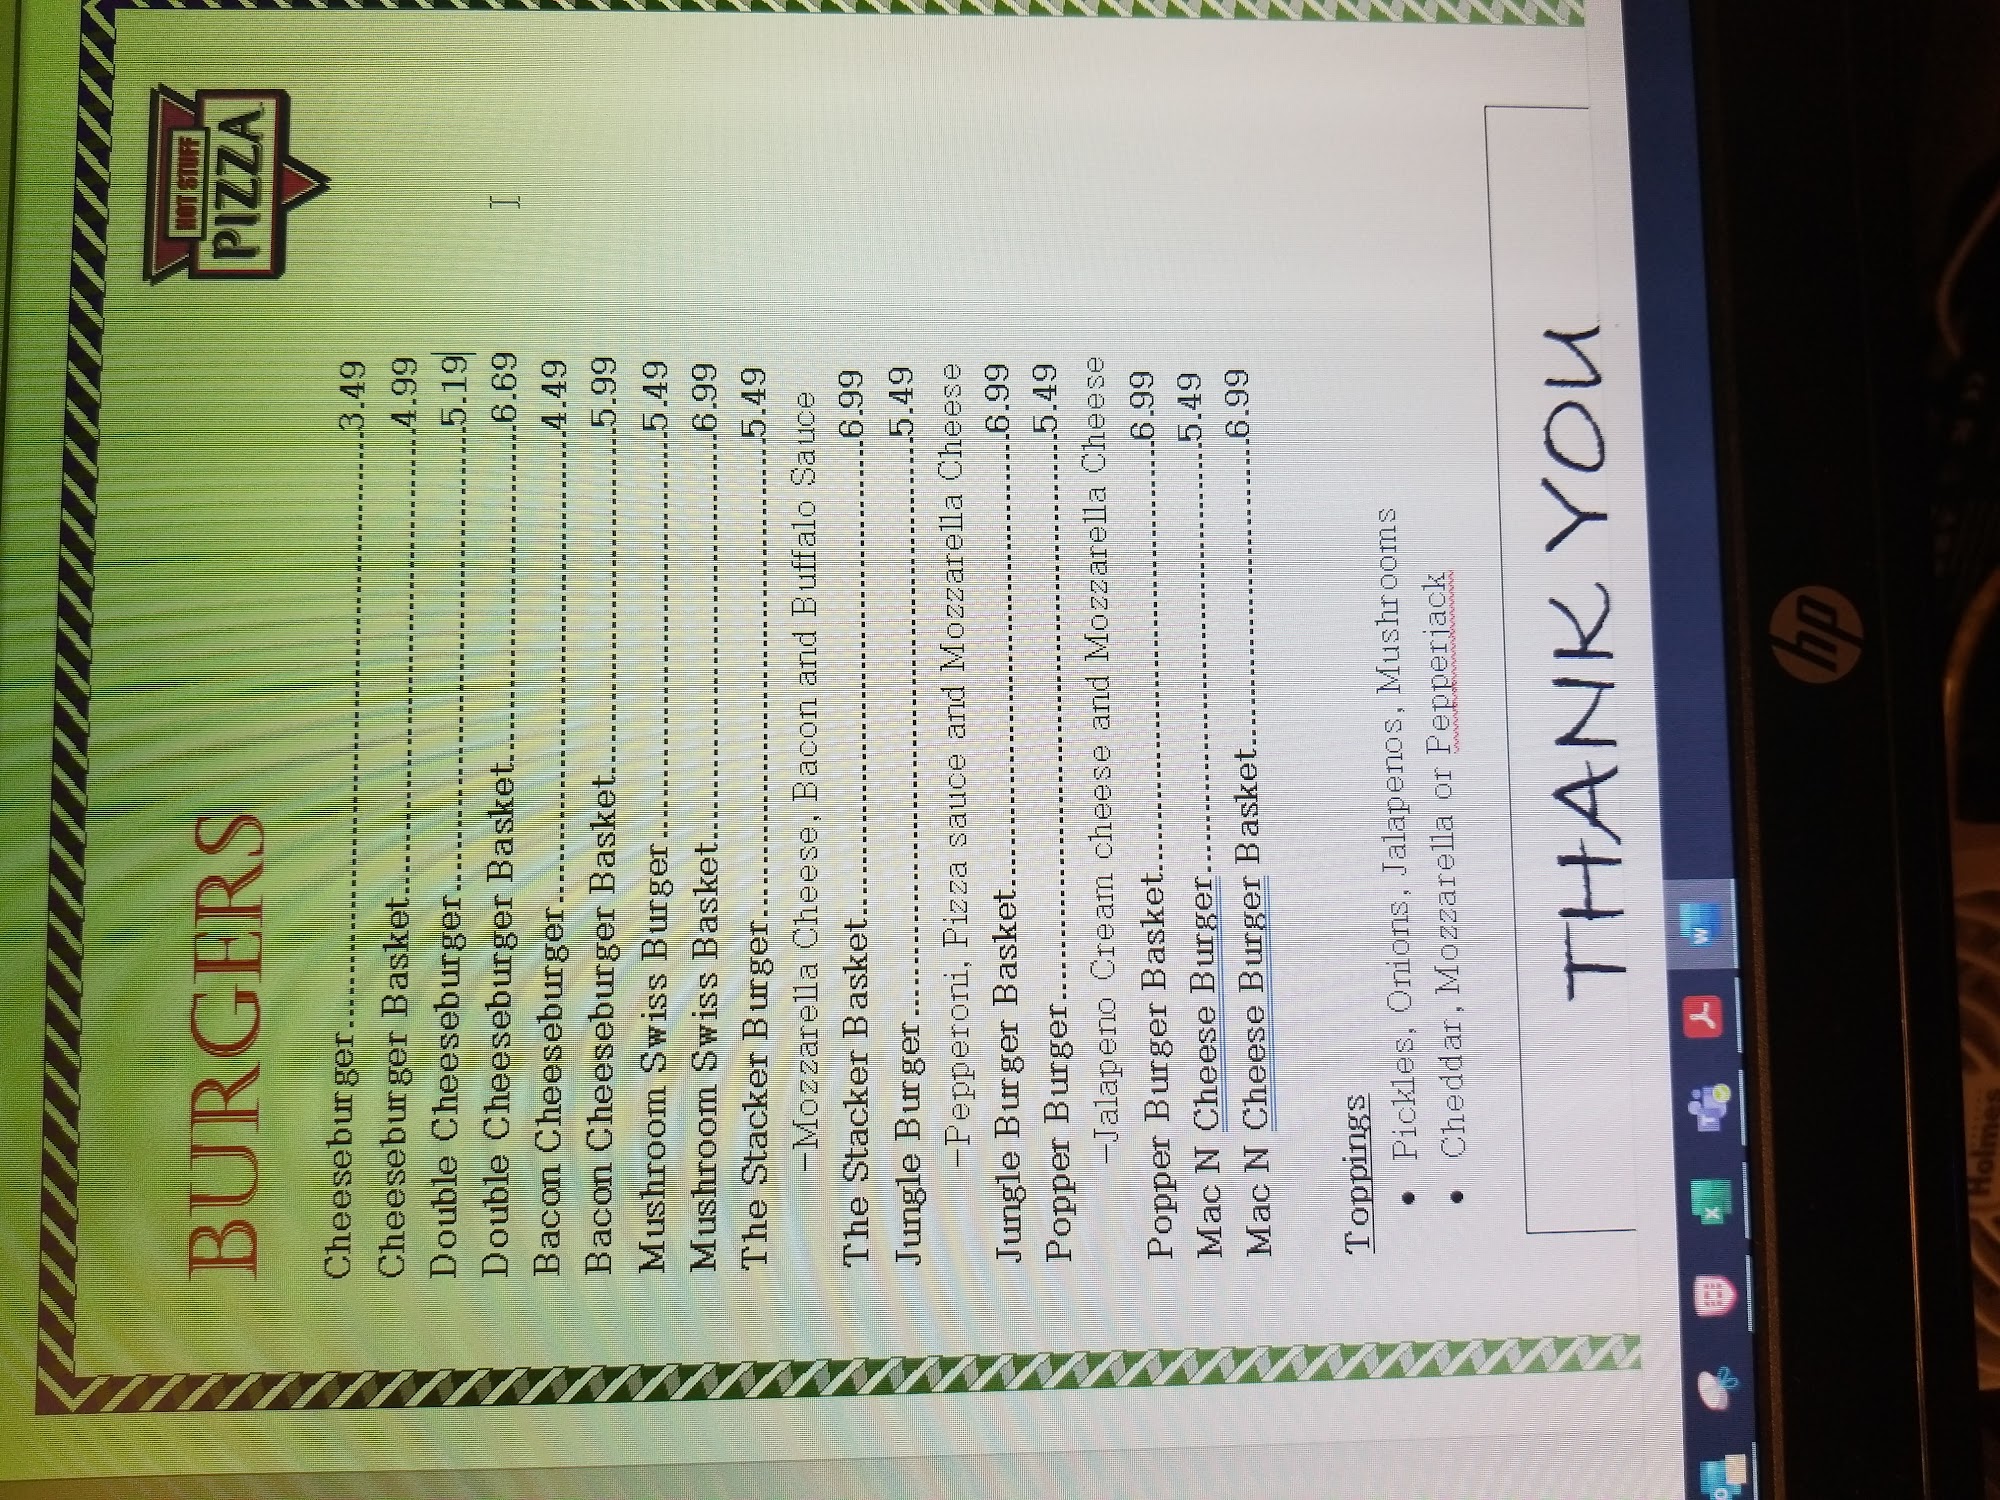 HOT STUFF
PIZZA
BURGERS
Cheeseburger 3.49
Cheeseburger Basket 4.99
Double Cheeseburger 5.19
Double Cheeseburger Basket 6.69
Bacon Cheeseburger 4.49
Bacon Cheeseburger Basket 5.99
Mushroom Swiss Burger 5.49
Mushroom Swiss Basket 6.99
The Stacker Burger 5.49
-Mozzarella Cheese, Bacon and Buffalo Sauce
The Stacker Basket 6.99
Jungle Burger 5.49
-Pepperoni, Pizza sauce and Mozzarella Cheese
Jungle Burger Basket 6.99
Popper Burger 5.49
-Jalapeno Cream cheese and Mozzarella Cheese
Popper Burger Basket 6.99
Mac N Cheese Burger 5.49
Mac N Cheese Burger Basket 6.99
Toppings
• Pickles, Onions, Jalapenos, Mushrooms
• Cheddar, Mozzarella or Pepperjack
THANK YOU
hp
Holmes